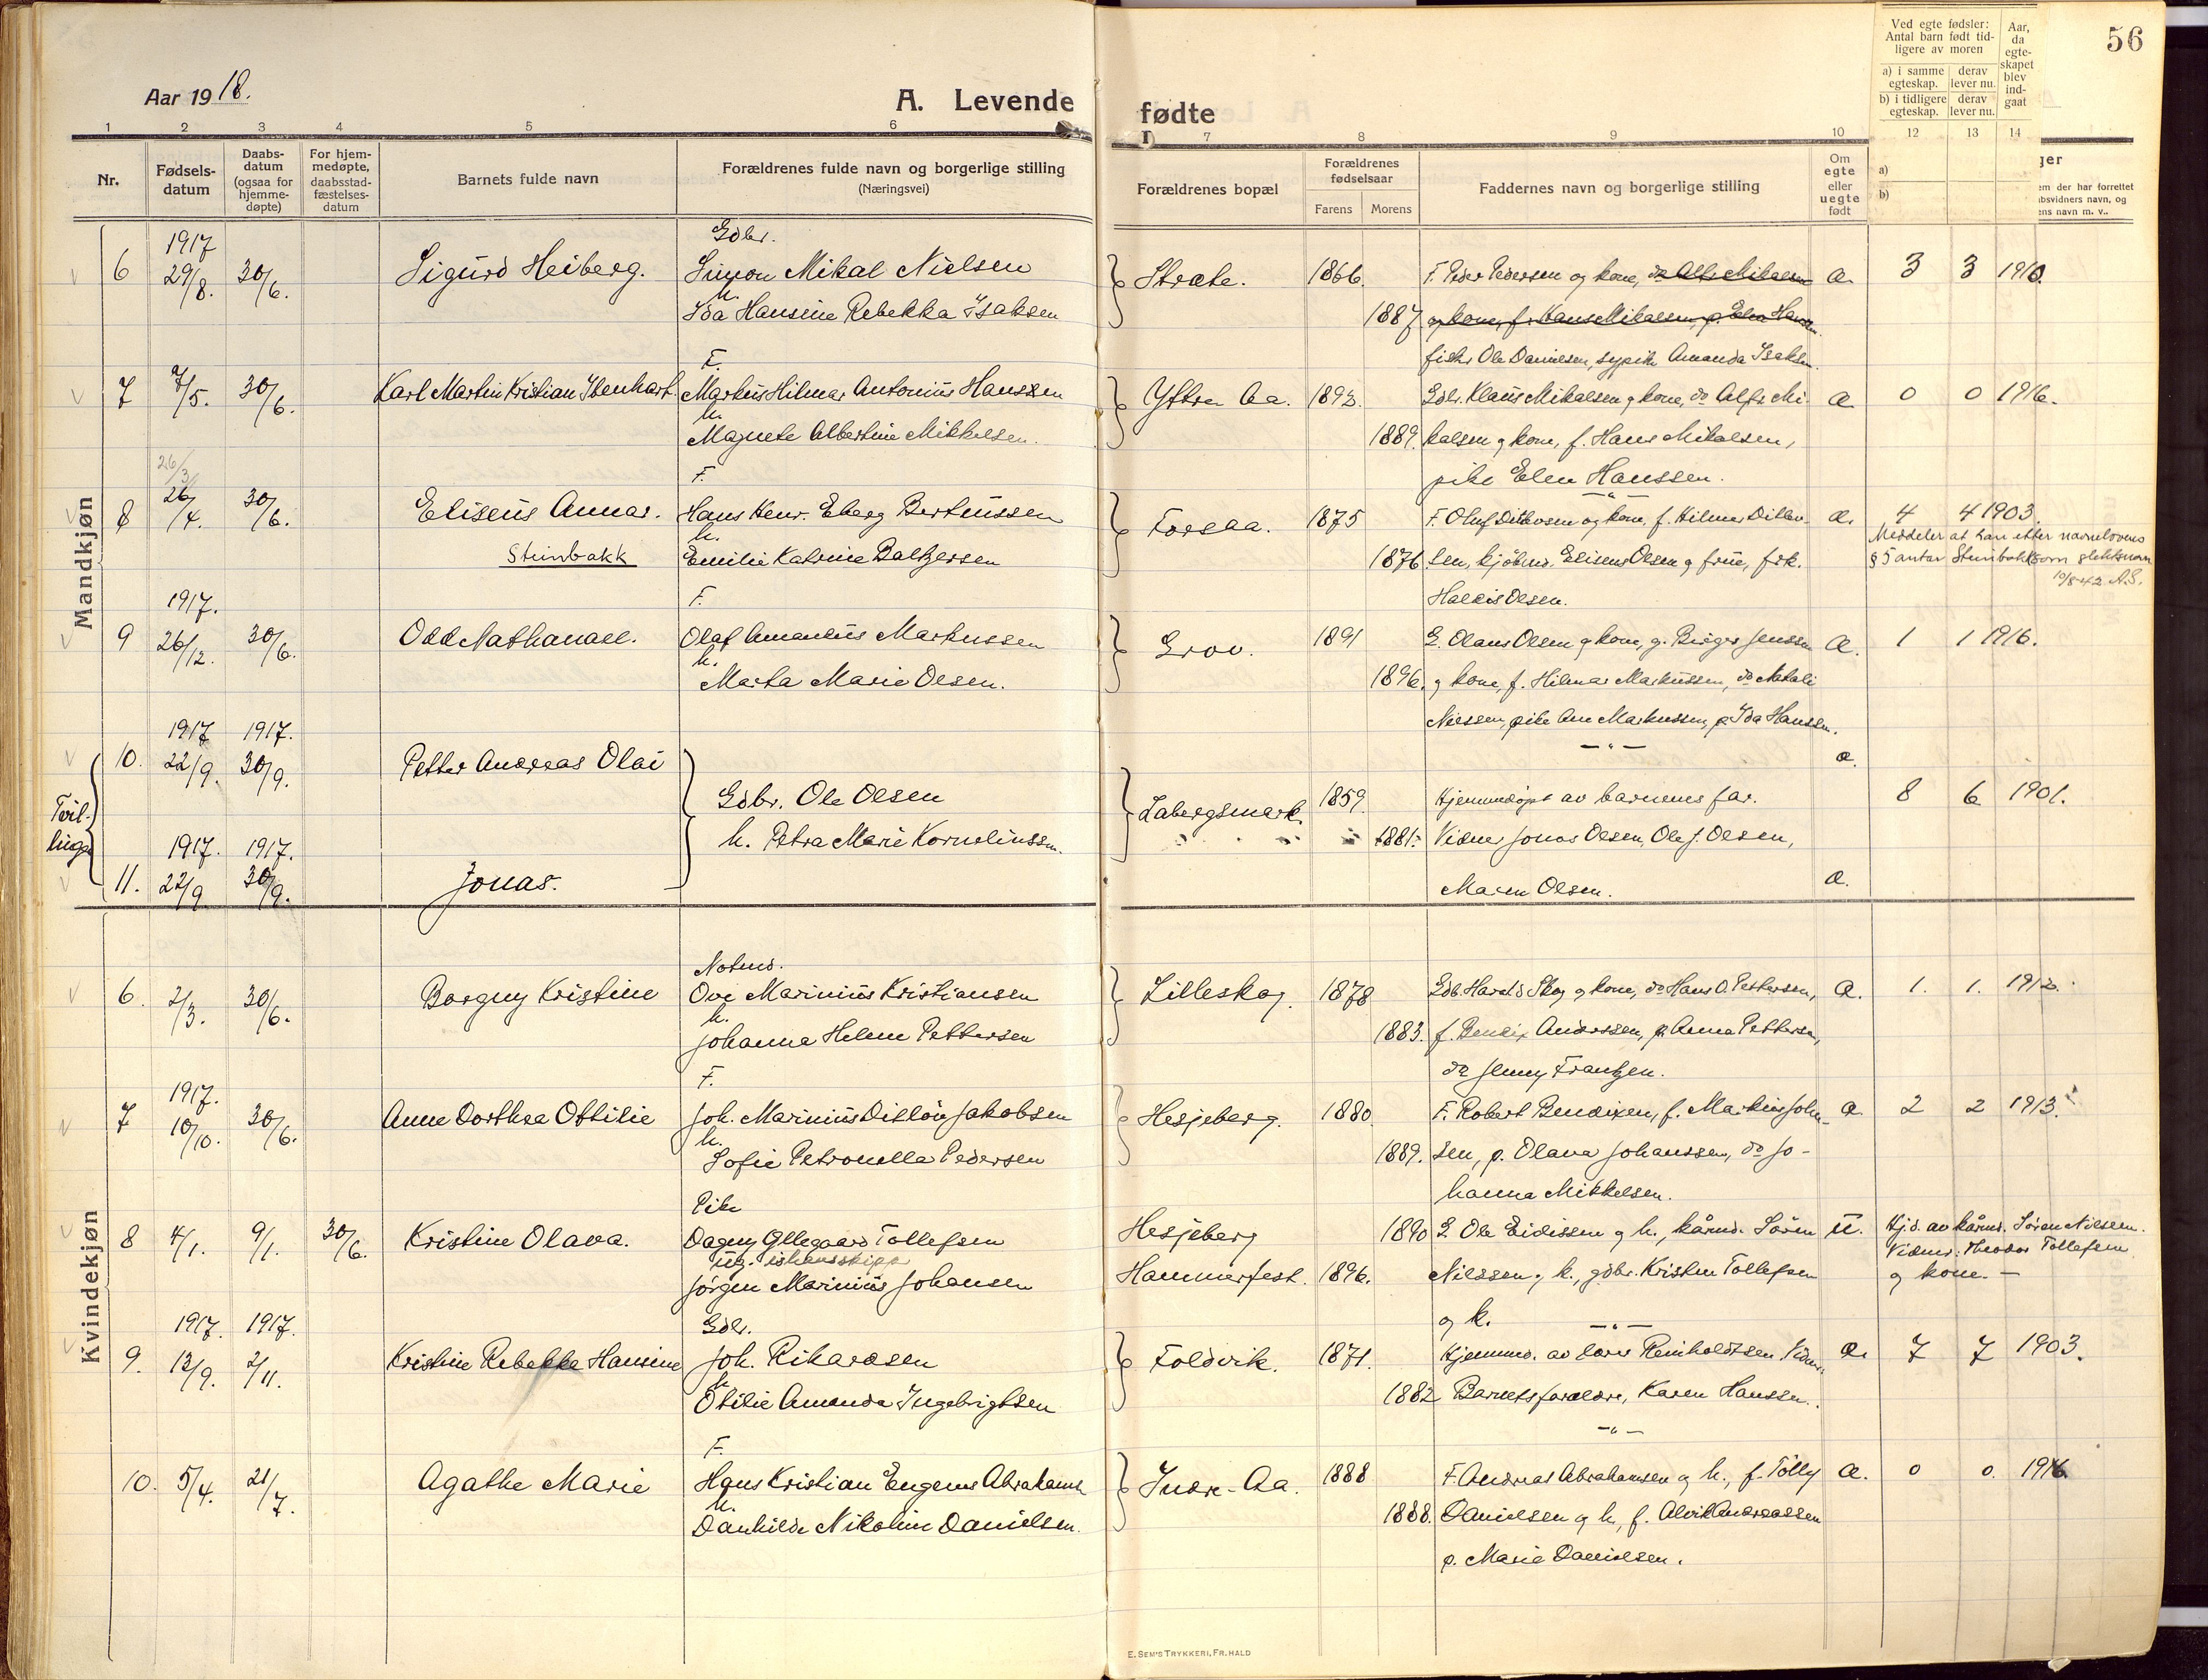 Aar 1918.
A. Levende
fødte
56
1 2 3 4 5 6 7 8 9 10 12 13 14
Nr.
Fødsels-
datum
Daabs-
datum
(ogsaa for
hjemme-
døpte)
For hjem-
medøpte,
daabsstad-
fæstelses-
datum
Barnets fulde navn
Forældrenes fulde navn og borgerlige stilling
(Næringsvei)
Forældrenes bopæl
Forældrenes
fødselsaar
Farens Morens
Faddernes navn og borgerlige stilling
Om
egte
eller
uegte
født
Ved egte fødsler:
Antal barn født tid-
ligere av moren
a) i samme
egteskap.
derav
lever nu.
b) i tidligere
egteskap.
derav
lever nu.
Aar,
da
egte-
skapet
blev
ind-
gaat
a)
b)
ger
em der har forrettet
bsvidners navn, og
ens navn m. v..
Mandkjøn
1917 Gdbr.
6 29/8. 30/6. Sigurd Heiberg. Simon Mikal Nielsen Stræte. 1866. F. Peder Pedersen og kone, do Alf Mikalsen a. 3 3 1910.
h.
Ida Hansine Rebekka Isaksen 1887 og kone, f. Hans Mikalsen, p. Elen Hansen.
fisker Ole Danielsen, sypike Amanda Isaksen
F.
7 7/5. 30/6. Karl Martin Kristian Ibenhart. Markus Hilmar Antonius Hanssen Yttre Aa. 1892. Gdbr. Klaus Mikalsen og kone, do Alfr. Mi- a. 0 0 1916.
h.
Magnete Albertine Mikkelsen. 1889. kalsen og kone, f. Hans Mikalsen,
pike Elen Hanssen.
26/3 F.
8 26/4. 30/6. Eliseus Annar. Hans Henr. Eberg Berteussen Forsaa. 1875 F. Oluf Ditlevsen og kone, f. Hilmar Ditlev- a. 4 4 1903.
h.
Steinbakk Emilie Katrine Baltzersen 1876 sen, kjøbmd. Eliseus Olsen og frue, frk.
Haldis Olsen.
Meddeler at han etter navnelovens
§ 5 antar Steinbakk som slektsnavn
10/8-42. A.S.
1917. F.
9 26/12. 30/6. Odd Nathanael. Olaf Amandus Markussen Grov. 1891 G. Olaus Olsen og kone, g. Birger Jenssen a. 1 1 1916.
h.
Marta Marie Olsen. 1896. og kone, f. Hilmar Markussen, do Nathali
Nilssen, pike Ane Markussen, p. Ida Hanssen.
1917 1917.
10. 22/9. 30/9. Petter Andreas Olai a.
Tvil-
linger
Gdbr. Ole Olsen Labergsmark. 1859. Hjemmedøpt av barnenes far. 8 6 1901.
1917. 1917. h. Petra Marie Korneliussen. 1881. Vidner Jonas Olsen, Ole J. Olsen,
11. 22/9 30/9. Jonas. Maren Olsen. a.
Kvindekjøn
Notmd.
6. 2/3. 30/6. Borgny Kristine Ove Marinius Kristiansen Lilleskog. 1878 Gdb. Harald Skog og kone, do Hans O. Pettersen, a. 1. 1. 1912.
h.
Johanna Helene Pettersen 1883. f. Bendix Anderssen, p. Anna Pettersen,
do Jenny Frantzen.
1917. F.
7 10/10. 30/6. Anne Dorthea Ottilie Joh. Marinius Ditløv Jakobsen Hesjeberg. 1880. F. Robert Bendixen, f. Markus Johan- a. 2 2 1913.
h.
Sofie Petronella Pedersen 1889. sen, p. Olava Johanssen, do Jo-
hanna Mikkelsen.
Pike
8 4/1. 9/1. 30/6. Kristine Olava. Dagny Ellegaard Tollefsen Hesjeberg 1890 G. Ole Eidissen og h., kårmd. Søren u. Hjd. av kårmd. Søren Nilssen.
ug. ishavsskipp
Jørgen Marinius Johansen Hammerfest. 1896. Nilssen og k., gdbr. Kristen Tollefsen Vidner: Theodor Tollefsen
og k. og kone. —
1917. 1917. Gdbr.
9. 12/9. 2/11. Kristine Rebekke Hansine Joh. Rikardsen Foldvik. 1871. Hjemmed. av lærer Reinholdtsen. Vidner. a. 7 7 1903.
h.
Otilie Amanda Ingebrigtsen 1882 Barnets forældre, Karen Hanssen.
F.
10. 5/4. 21/7. Agathe Marie Hans Kristian Eugenus Abrahams. Indre-Aa. 1888 F. Andreas Abrahamsen og h., f. Tolly a. 0 0. 1916.
h.
Danhilde Nikoline Danielsen. 1888. Danielsen og h., f. Alvik Andreassen
p. Marie Danielsen.
E. SEM'S TRYKKERI, FR.HALD